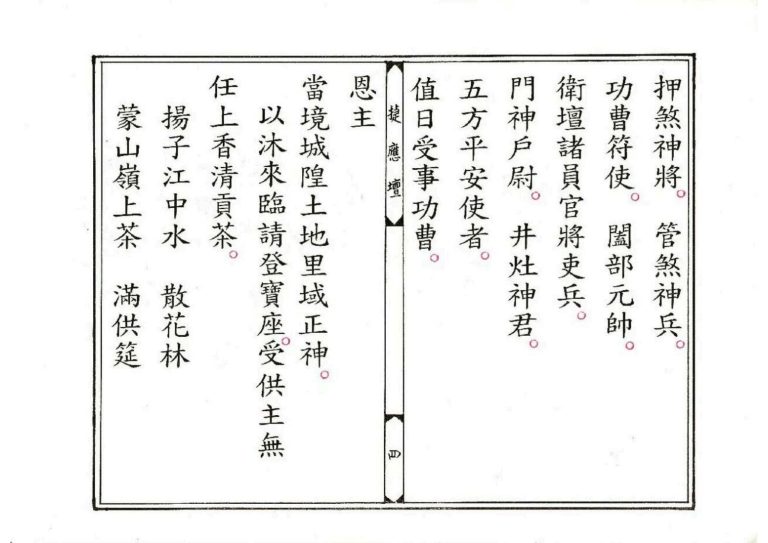 押煞神將。　管煞神兵。
功曹符使。　闔部元帥。
衛壇諸員官將吏兵。
門神戶尉。　井灶神君。
五方平安使者。
值日受事功曹。
捷應壇　四
恩主
當境城隍土地里域正神。
以沐來臨請登寶座。受供主無
任上香清貢茶。
揚子江中水　散花林
蒙山嶺上茶　滿供筵